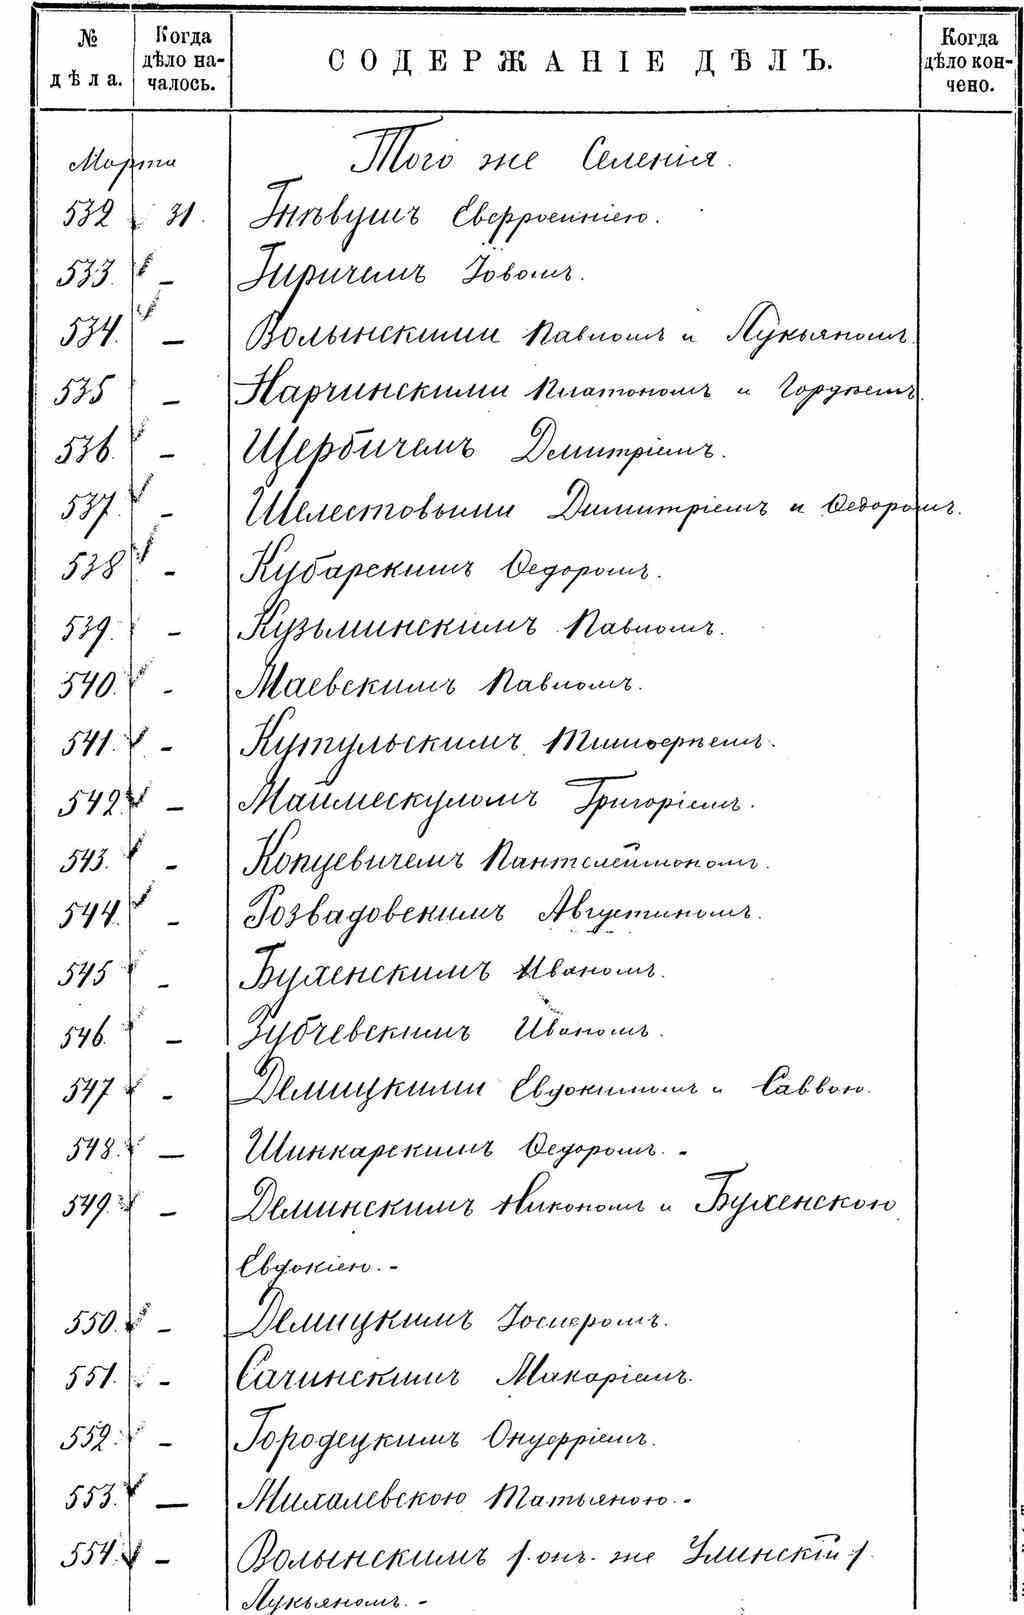 № дѣла.
Когда дѣло на-чалось.
СОДЕРЖАНІЕ ДѢЛЪ.
Когда дѣло кон-чено.
Марта Того же Селенія.
532 31. Гнѣвушъ Евфросиніею.
533. – Гиричемъ Іовомъ.
534. – Волынскими Павломъ и Лукьяномъ
535 – Нарчинскими Платономъ и Гордѣемъ
536. – Щербичемъ Дмитріемъ.
537. – Шелестовыми Димитріемъ и Ѳедоромъ.
538 – Кубарскимъ Ѳедоромъ.
539. – Кузьминскимъ Павломъ.
540. – Маевскимъ Павломъ.
541. – Кутульскимъ Тимоѳѣемъ.
542 – Маймескуломъ Григоріемъ.
543. – Копцевичемъ Пантелеймономъ.
544. – Розвадовскимъ Августиномъ.
545 – Бухенскимъ Иваномъ.
546. – Зубчевскимъ Иваномъ.
547 – Демицкими Евдокимомъ и Саввою.
548. – Шинкарскимъ Ѳедоромъ. -
549. – Деминскимъ Никономъ и Бухенскою
Евдокіею. -
550. – Демицкимъ Іосифомъ.
551. – Сачинскимъ Макаріемъ.
552. – Городецкимъ Онуфріемъ.
553. – Михалевскою Татьяною. -
554. – Волынскимъ /. онъ же Улинскій /.
Лукьяномъ. -